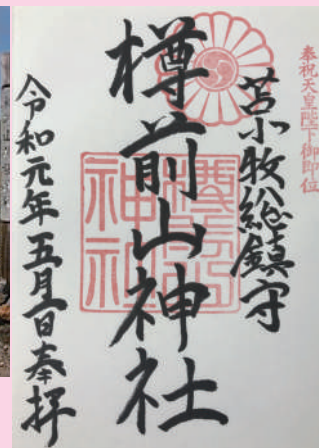 奉祝天皇陛下御即位
苫小牧総鎮守
樽前山神社
令和元年五月一日奉拝